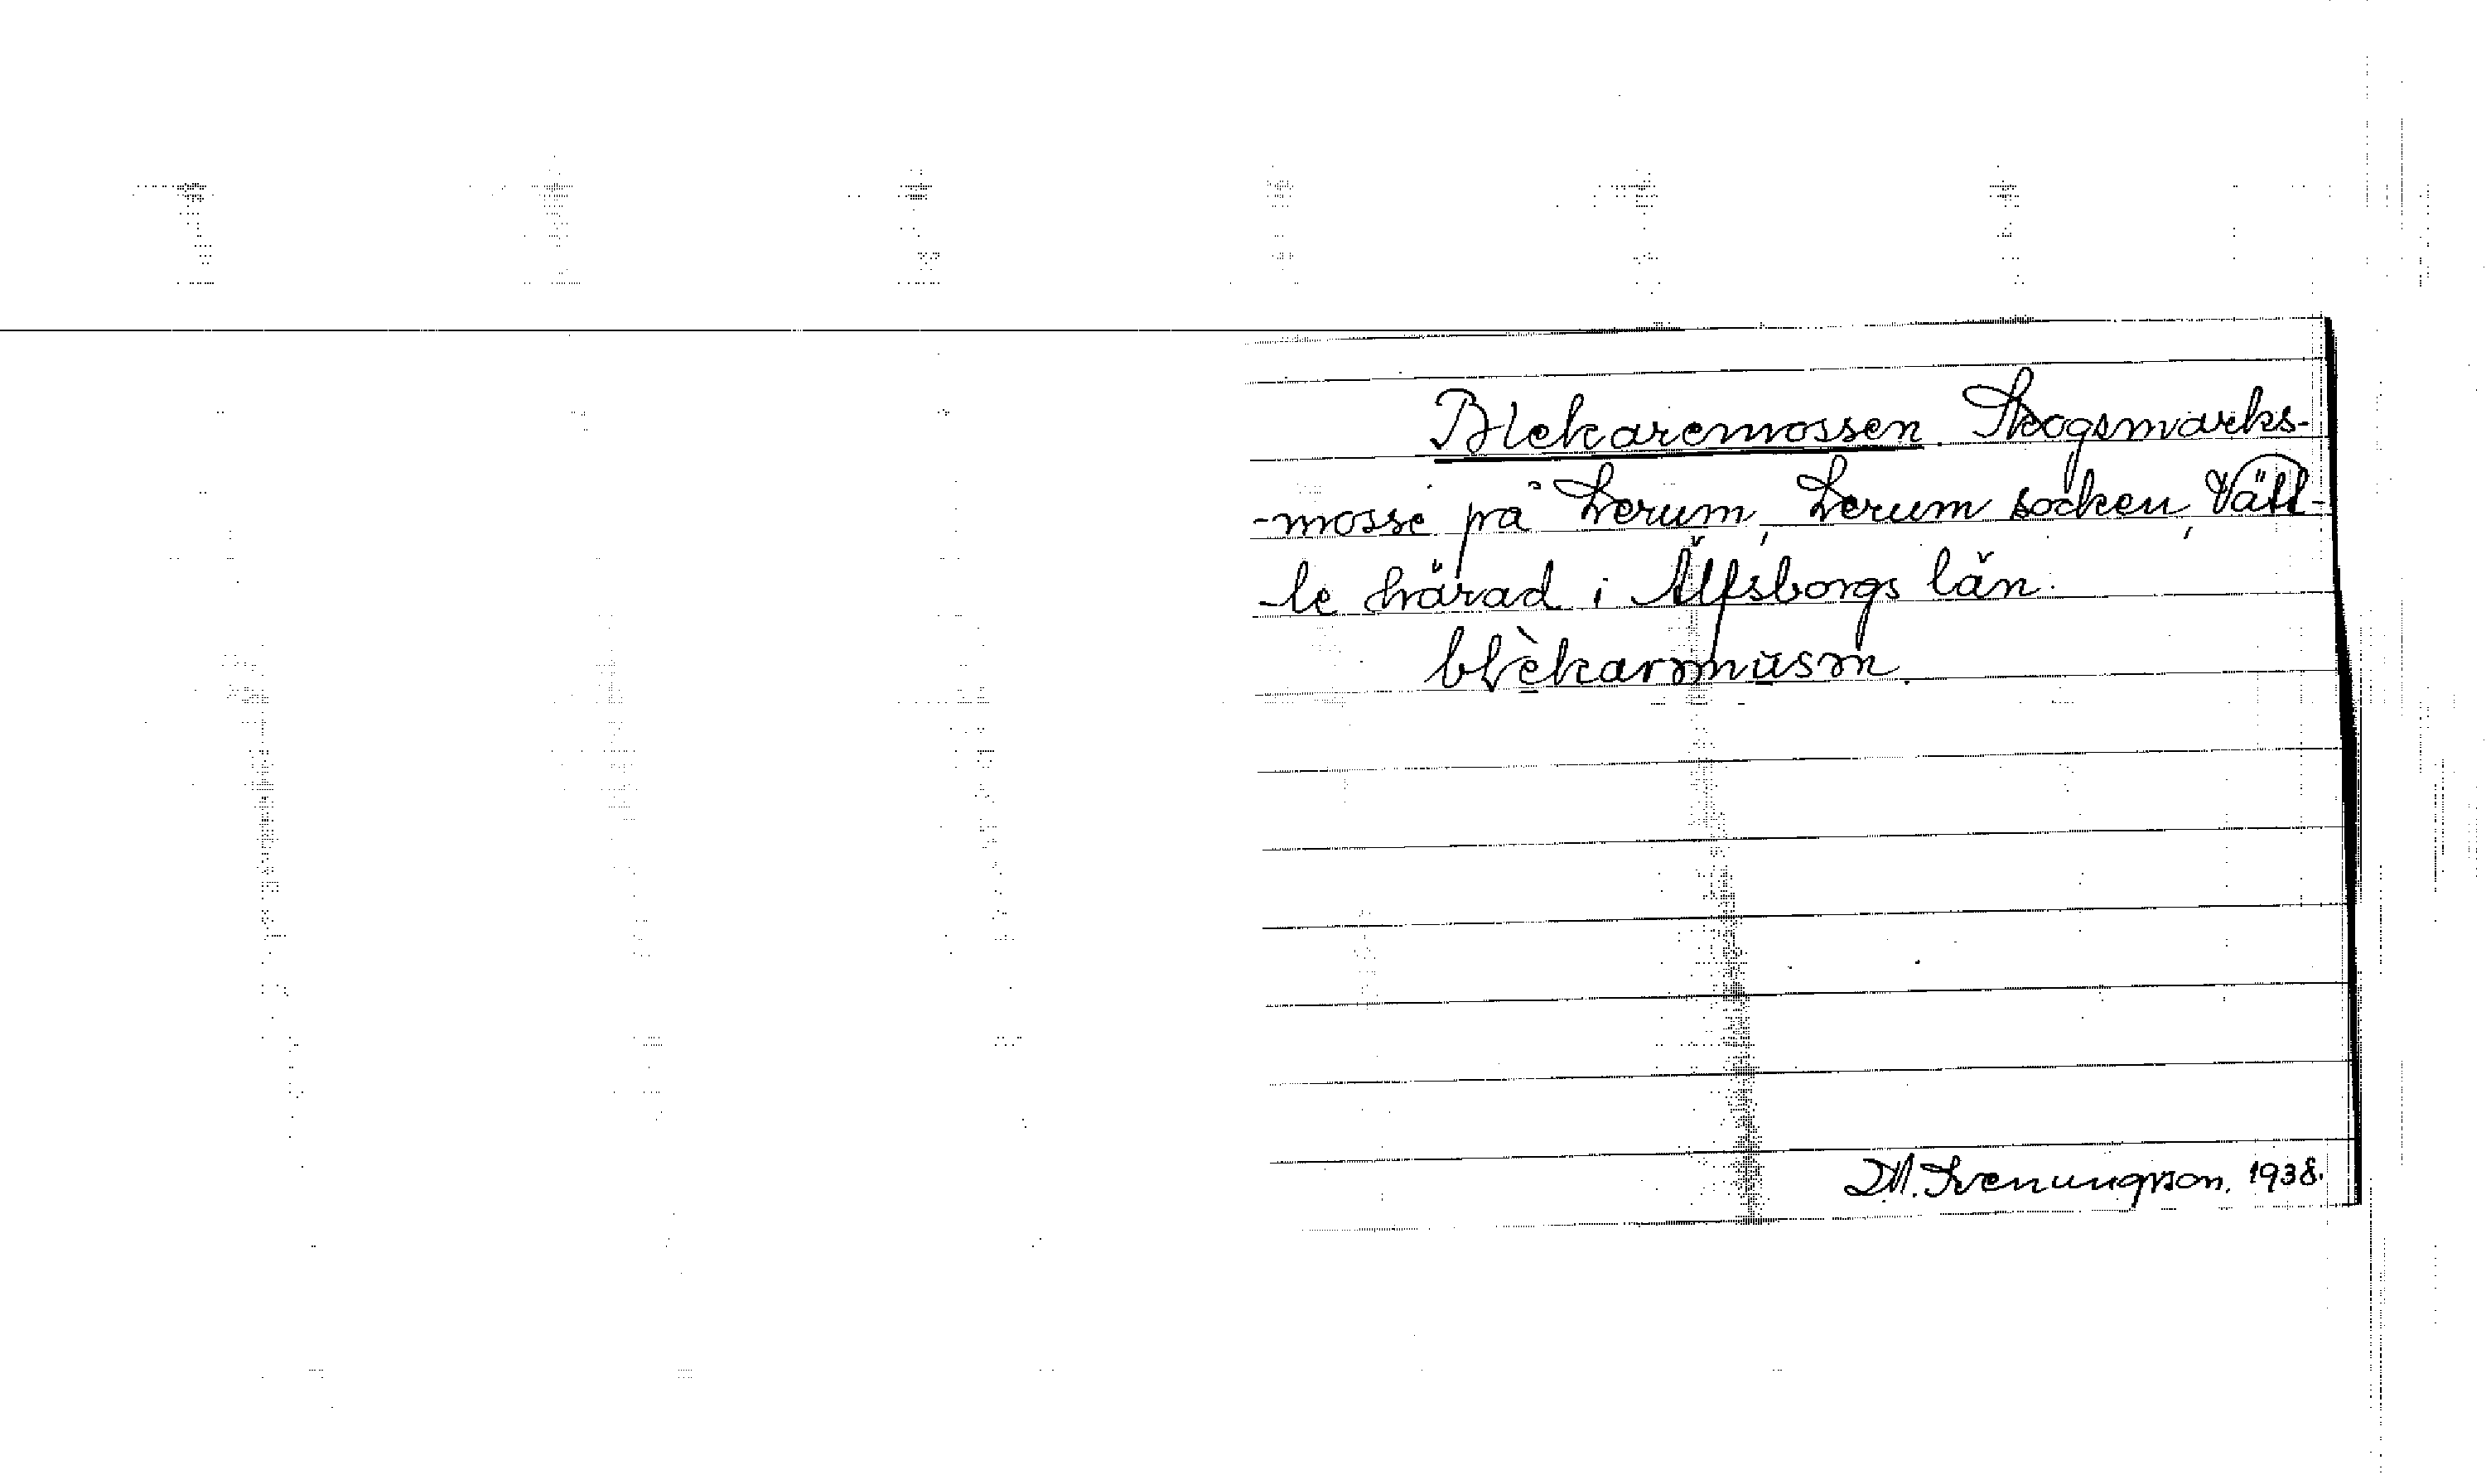 Blekaremossen. Skogsmarks-
-mosse på Lerum, Lerum socken, Vätt-
-le härad i Älfsborgs län.
blèkarmusm.
M. Svenungsson. 1938.